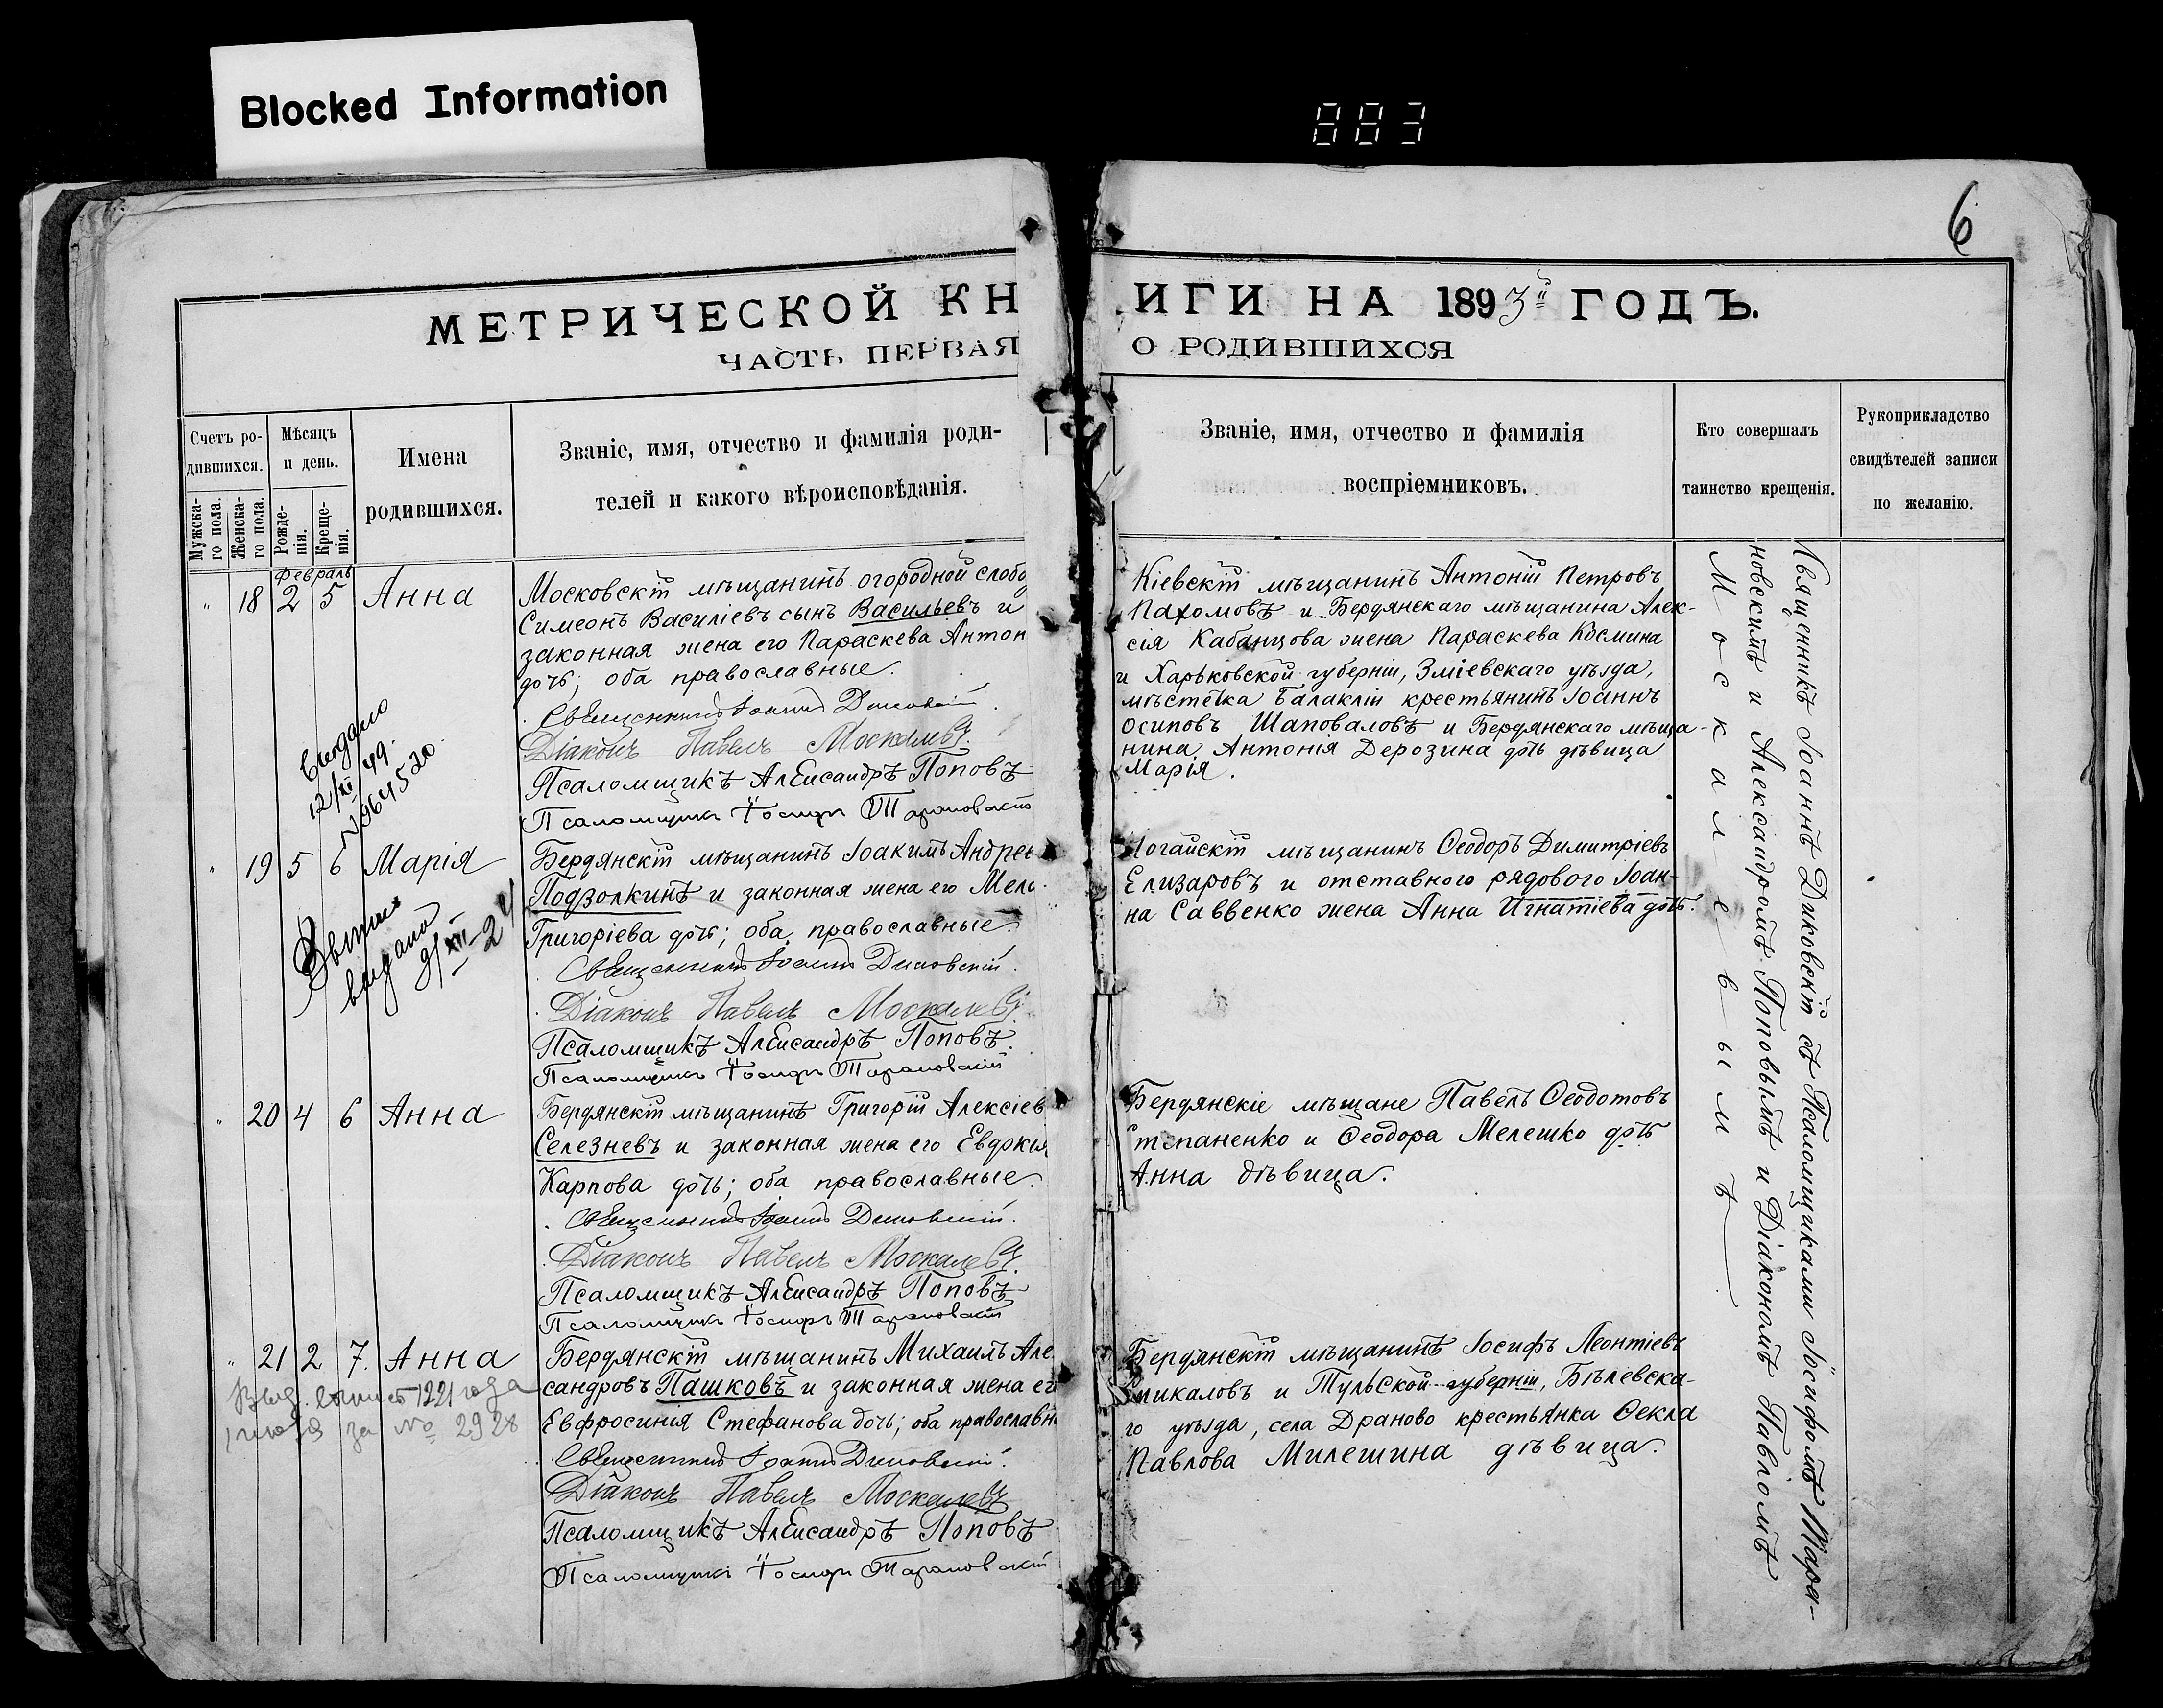 Blocked Information
883
6
МЕТРИЧЕСКОЙ КН
ИГИ НА 1893й ГОДЪ.
ЧАСТЬ ПЕРВАЯ
О РОДИВШИХСЯ
Счетъ ро-
дившихся.
Мужска-
го пола.
Женска-
го пола.
Мѣсяцъ
и день.
Рожде-
нія.
Креще-
нія.
Имена
родившихся.
Званіе, имя, отчество и фамилія роди-
телей и какого вѣроисповѣданія.
Званіе, имя, отчество и фамилія
воспріемниковъ.
Кто совершалъ
таинство крещенія.
Рукоприкладство
свидѣтелей записи
по желанію.
Февраль
" 18 2 5 Анна
Московскій мѣщанинъ огородной слобо
Симеонъ Василіевъ сынъ Васильевъ и
законная жена его Параскева Антон
дочь; оба православные.
Священникъ Іоаннъ Диковскій.
Діаконъ Павелъ Москалевъ.
Псаломщикъ Александръ Поповъ
Псаломщикъ Іосифъ Тарановскій
Кіевскій мѣщанинъ Антоній Петровъ
Пахомовъ и Бердянскаго мѣщанина Алек-
сія Кабанцова жена Параскева Космина
и Харьковской губерніи, Зміевскаго уѣзда,
мѣстечка Балаклій крестьянинъ Іоаннъ
Осиповъ Шаповаловъ и Бердянскаго мѣща-
нина Антонія Дерозина дочь дѣвица
Марія.
Выдано
12/XI 49.
№964520
" 19 5 6 Марія
Бердянскій мѣщанинъ Іоакимъ Андрее
Подзолкинъ и законная жена его Мела
Григоріева дочь; оба православные.
Священникъ Іоаннъ Диковскій.
Діаконъ Павелъ Москалевъ.
Псаломщикъ Александръ Поповъ.
Псаломщикъ Іосифъ Тарановскій
Ногайскій мѣщанинъ Ѳеодоръ Димитріевъ
Елизаровъ и отставного рядового Іоан-
на Саввенко жена Анна Игнатіева дочь.
выдано
9/XII-24
" 20 4 6 Анна
Бердянскій мѣщанинъ Григорій Алексіев
Селезневъ и законная жена его Евдокія
Карпова дочь; оба православные.
Священникъ Іоаннъ Диковскій.
Діаконъ Павелъ Москалевъ.
Псаломщикъ Александръ Поповъ
Псаломщикъ Іосифъ Тарановскій
Бердянскіе мѣщане Павелъ Ѳеодотовъ
Степаненко и Ѳеодора Мелешко дочь
Анна дѣвица.
" 21 2 7. Анна
Бердянскій мѣщанинъ Михаилъ Але
сандровъ Пашковъ и законная жена ег
Евфросинія Стефанова дочь; оба православн
Священникъ Іоаннъ Диковскій.
Діаконъ Павелъ Москалевъ
Псаломщикъ Александръ Поповъ
Псаломщикъ Іосифъ Тарановскій
Бердянскій мѣщанинъ Іосифъ Леонтіевъ
и Тульской губерніи, Бѣлевска-
го уѣзда, села Драново крестьянка Ѳекла
Павлова Милешина дѣвица.
за № 2928
Священникъ Іоаннъ Диковскій съ Псаломщиками Іосифомъ Тара-
новскимъ и Александромъ Поповымъ и Діакономъ Павломъ
Москалевымъ